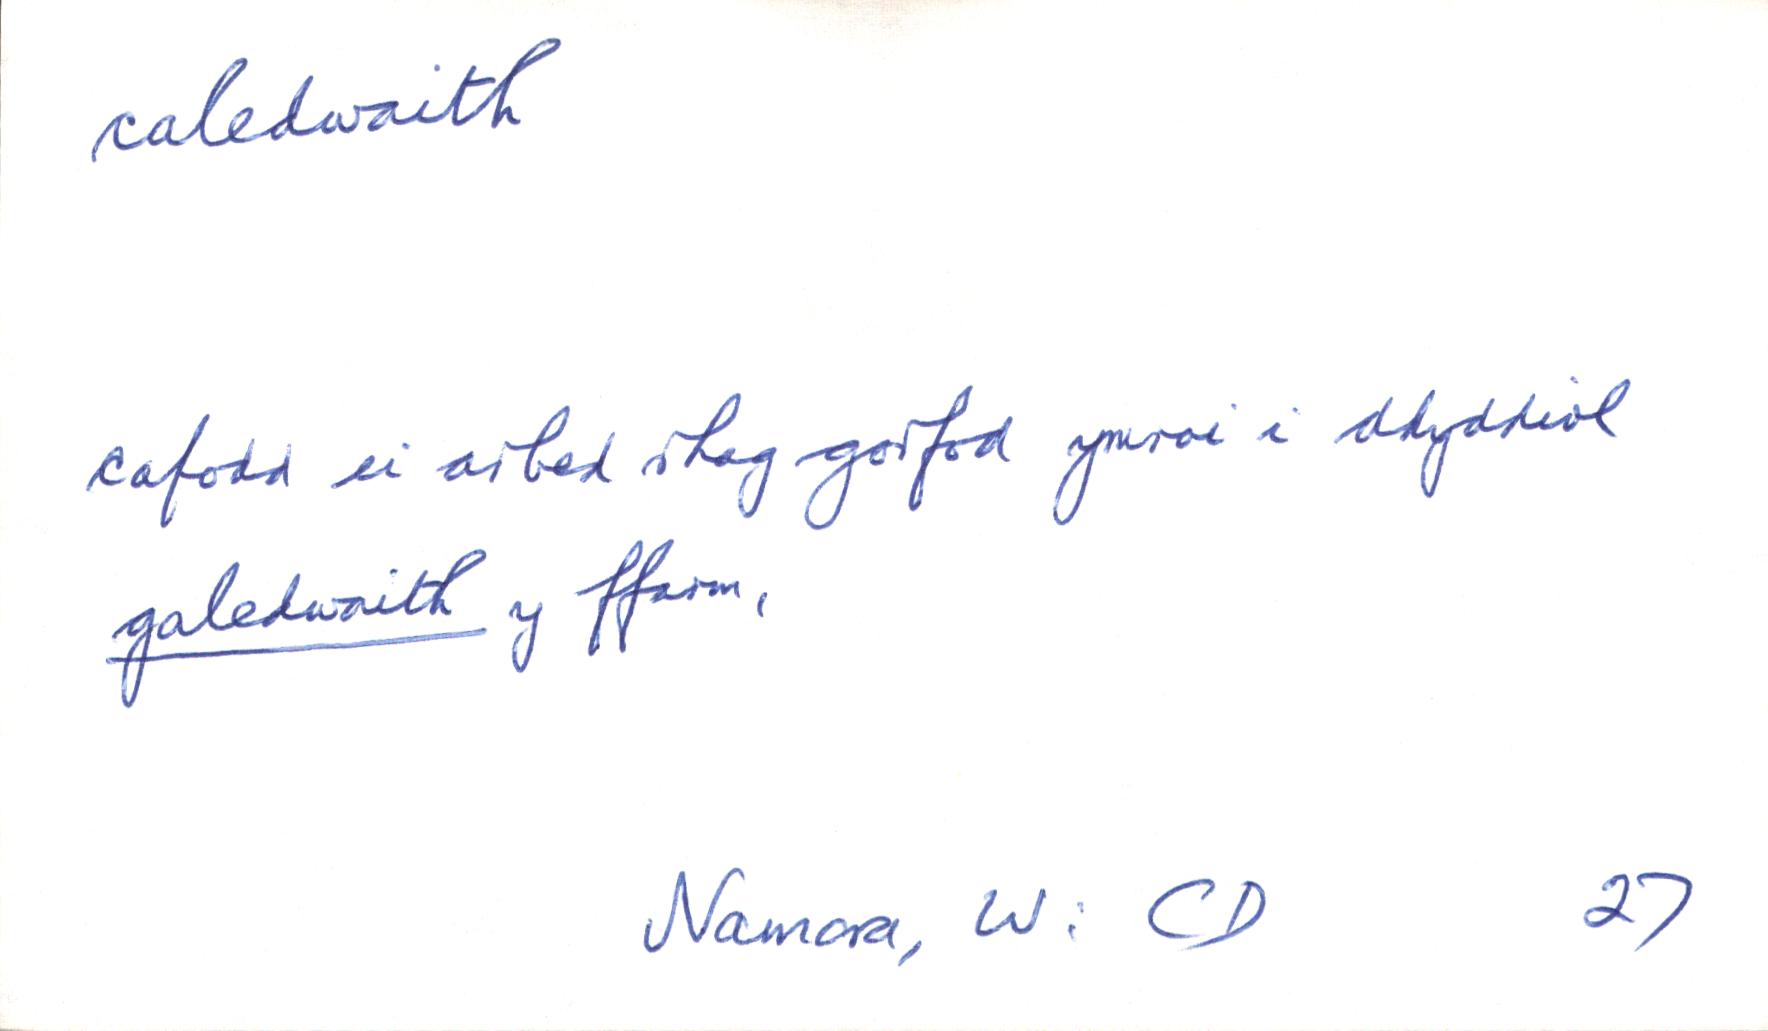 caledwaith
cafodd ei arbed rhag gorfod ymroi i ddyddiol
galedwaith y ffarm,
Namora, W: CD 27